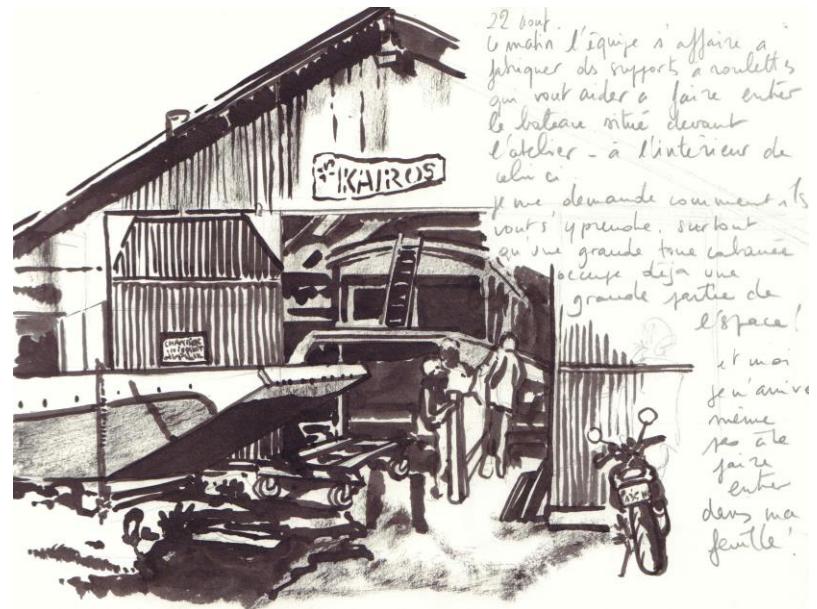 22 aout.
Ce matin l'équipe s'affaire a
fabriquer ds supports a roulettes
qui vont aider a faire entrer
le bateau situé devant
l'atelier - à l'intérieur de
celui ci
je me demande comment ils
vont s'y prendre. surtout
qu'une grande toue cabanée
occupe déja une
grande partie de
l'espace!
et moi
je n'arrive
même
pas à le
faire
entrer
dans ma
feuille!
KAIROS
CHANTIER
INTERDIT